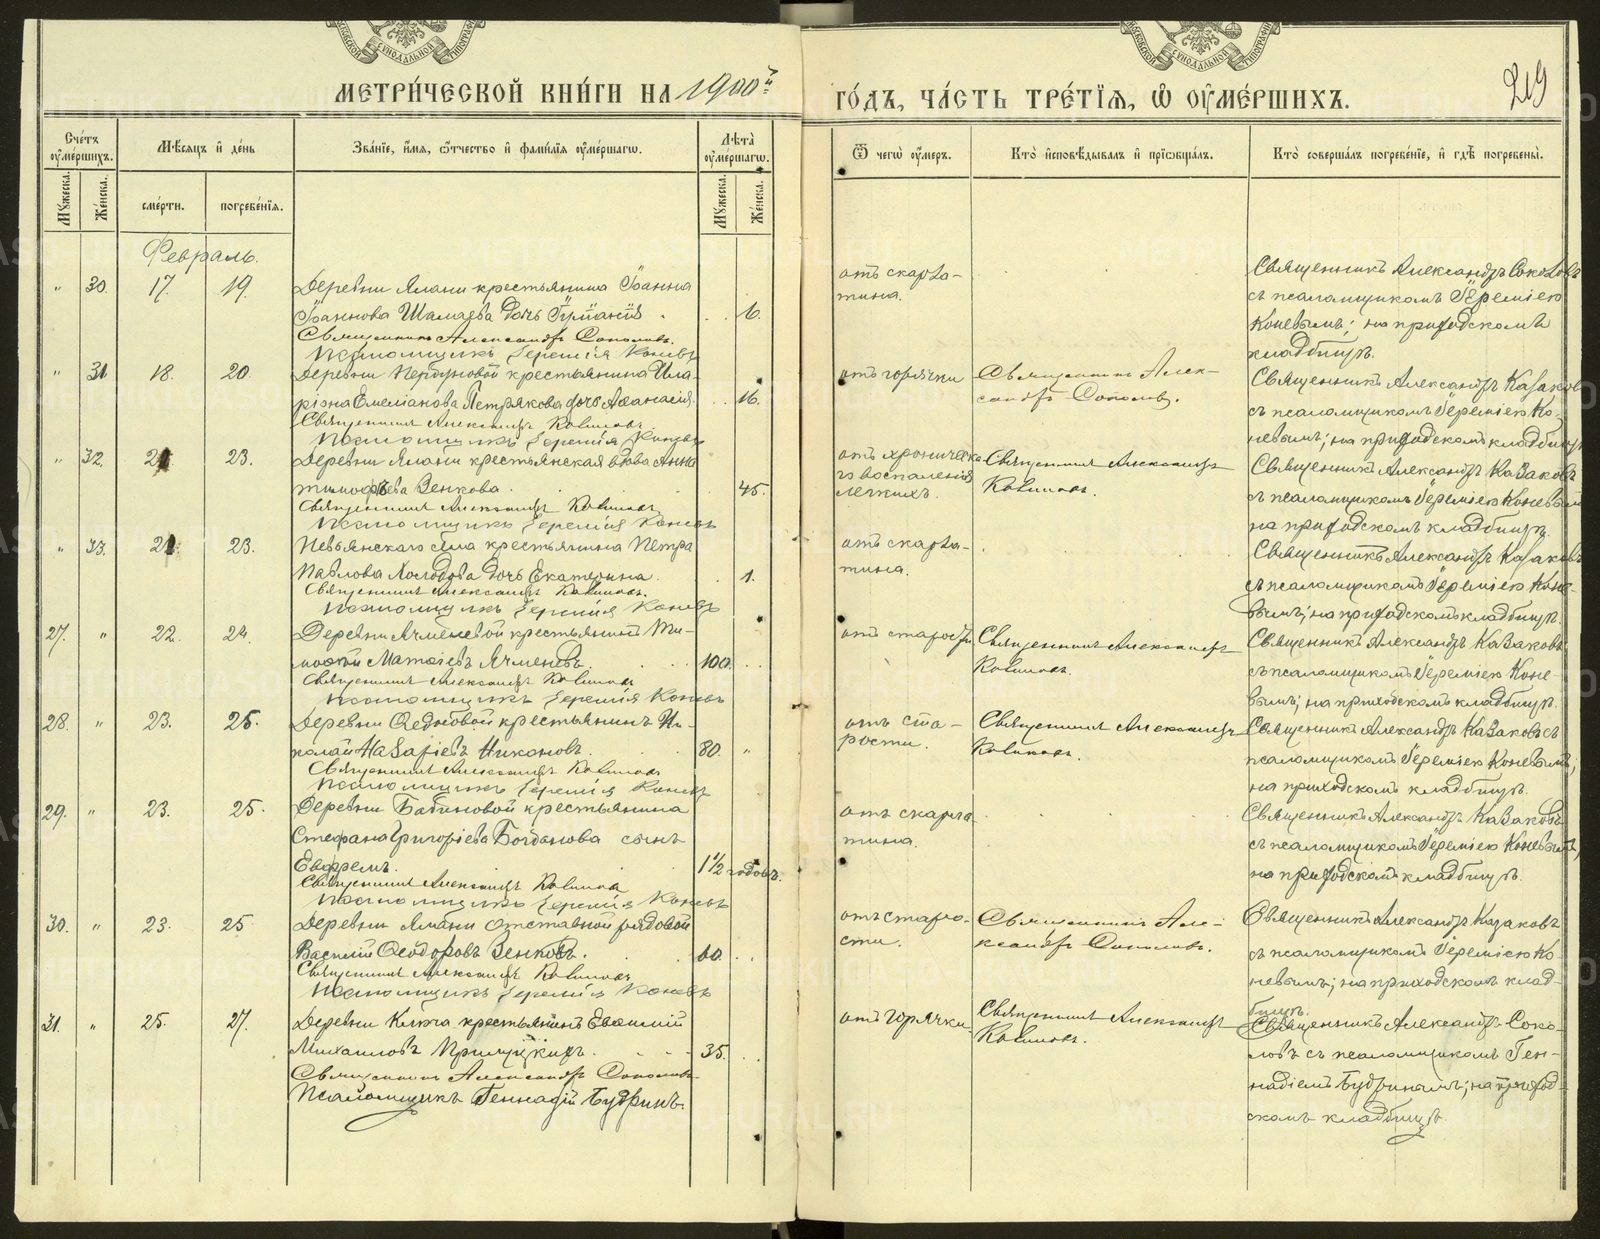 МЕТРИ́ЧЕСКОЙ КНИ́ГИ НА 1900й
ГО́ДЪ, ЧА́СТЬ ТРЕ́ТІѦ, Ѡ҆ ОУ҆МЕ́РШИХЪ.
219
Счетъ оумершихъ.
Мужеска.
Женска.
Мѣсяцъ и день
смерти.
погребенія.
Званіе, имя, отчество и фамилія оумершаго.
Лѣта оумершаго.
Мужеска.
Женска.
Ѿ чегѡ оумеръ.
Кто исповѣдывалъ и пріобщалъ.
Кто совершалъ погребеніе, и гдѣ погребены.
Февраль.
" 30. 17. 19. Деревни Ялани крестьянина Іоанна
Іоаннова Шамаева дочь 6.
Священникъ Александръ Соколовъ.
Псаломщикъ Іеремія Коневъ
отъ скарла-
тина.
Священникъ Александръ Соколовъ
съ псаломщикомъ Іереміею
Коневымъ; на приходскомъ
кладбищѣ.
" 31 18. 20. Деревни крестьянина Ила-
ріона Емеліанова Петрякова дочь Аѳанасія 16.
Священникъ Александръ Казаковъ
Псаломщикъ Іеремія Коневъ
отъ горячки
Священникъ Алек-
сандръ Соколовъ.
Священникъ Александръ Казаковъ
съ псаломщикомъ Іереміею Ко-
невымъ; на приходскомъ кладбищѣ
" 32. 21 23. Деревни Ялани крестьянская вдова Анна
Тимофѣева Зенкова. 45.
Священникъ Александръ Казаковъ
Псаломщикъ Іеремія Коневъ
отъ хроническа-
го воспаленія
легкихъ.
Священникъ Александръ
Казаковъ.
Священникъ Александръ Казаковъ
съ псаломщикомъ Іереміею Коневымъ
на приходскомъ кладбищѣ.
" 33. 21. 23. Невьянскаго села крестьянина Петра
Павлова Холодова дочь Екатерина. 1.
Священникъ Александръ Казаковъ.
Псаломщикъ Іеремія Коневъ
отъ скарла-
тина.
Священникъ Александръ Казаковъ
съ псаломщикомъ Іереміею Коне-
вымъ; на приходскомъ кладбищѣ.
27. " 22. 24. Деревни Ячменевой крестьянинъ Ти-
моѳей Матѳіевъ Ячменевъ. 100.
Священникъ Александръ Казаковъ
Псаломщикъ Іеремія Коневъ
отъ старости
Священникъ Александръ
Казаковъ.
Священникъ Александръ Казаковъ
съ псаломщикомъ Іереміею Коне-
вымъ; на приходскомъ кладбищѣ.
28. " 23. 25. Деревни Ѳедосовой крестьянинъ Ни-
колай Назаріевъ Никоновъ. 80. "
Священникъ Александръ Казаковъ
Псаломщикъ Іеремія Коневъ
отъ ста-
рости.
Священникъ Александръ
Казаковъ.
Священникъ Александръ Казаковъ съ
псаломщикомъ Іереміею Коневымъ,
на приходскомъ кладбищѣ.
29. " 23. 25. Деревни Бабиновой крестьянина
Стефана Григоріева Богданова сынъ
Евфремъ. 1½ годовъ.
Священникъ Александръ Казаковъ
Псаломщикъ Іеремія Коневъ
отъ скарла
тина.
Священникъ Александръ Казаковъ
съ псаломщикомъ Іереміею Коневымъ,
на приходскомъ кладбищѣ.
30. " 23. 25 Деревни Ялани отставной рядовой
Василій Ѳеодоровъ Зенковъ. 60.
Священникъ Александръ Казаковъ
Псаломщикъ Іеремія Коневъ
отъ старо-
сти.
Священникъ Але-
ксандръ Соколовъ.
Священникъ Александръ Казаковъ
съ псаломщикомъ Іереміею Ко-
невымъ; на приходскомъ клад-
бищѣ.
31. " 25. 27. Деревни Ключа крестьянинъ Евѳимій
Михаиловъ Прилуцкихъ. 35.
Священникъ Александръ Соколовъ
Псаломщикъ Геннадій Будринъ.
отъ горячки
Священникъ Александръ
Казаковъ.
Священникъ Александръ Соко-
ловъ съ псаломщикомъ Ген-
надіемъ Будринымъ; на приход-
скомъ кладбищѣ.